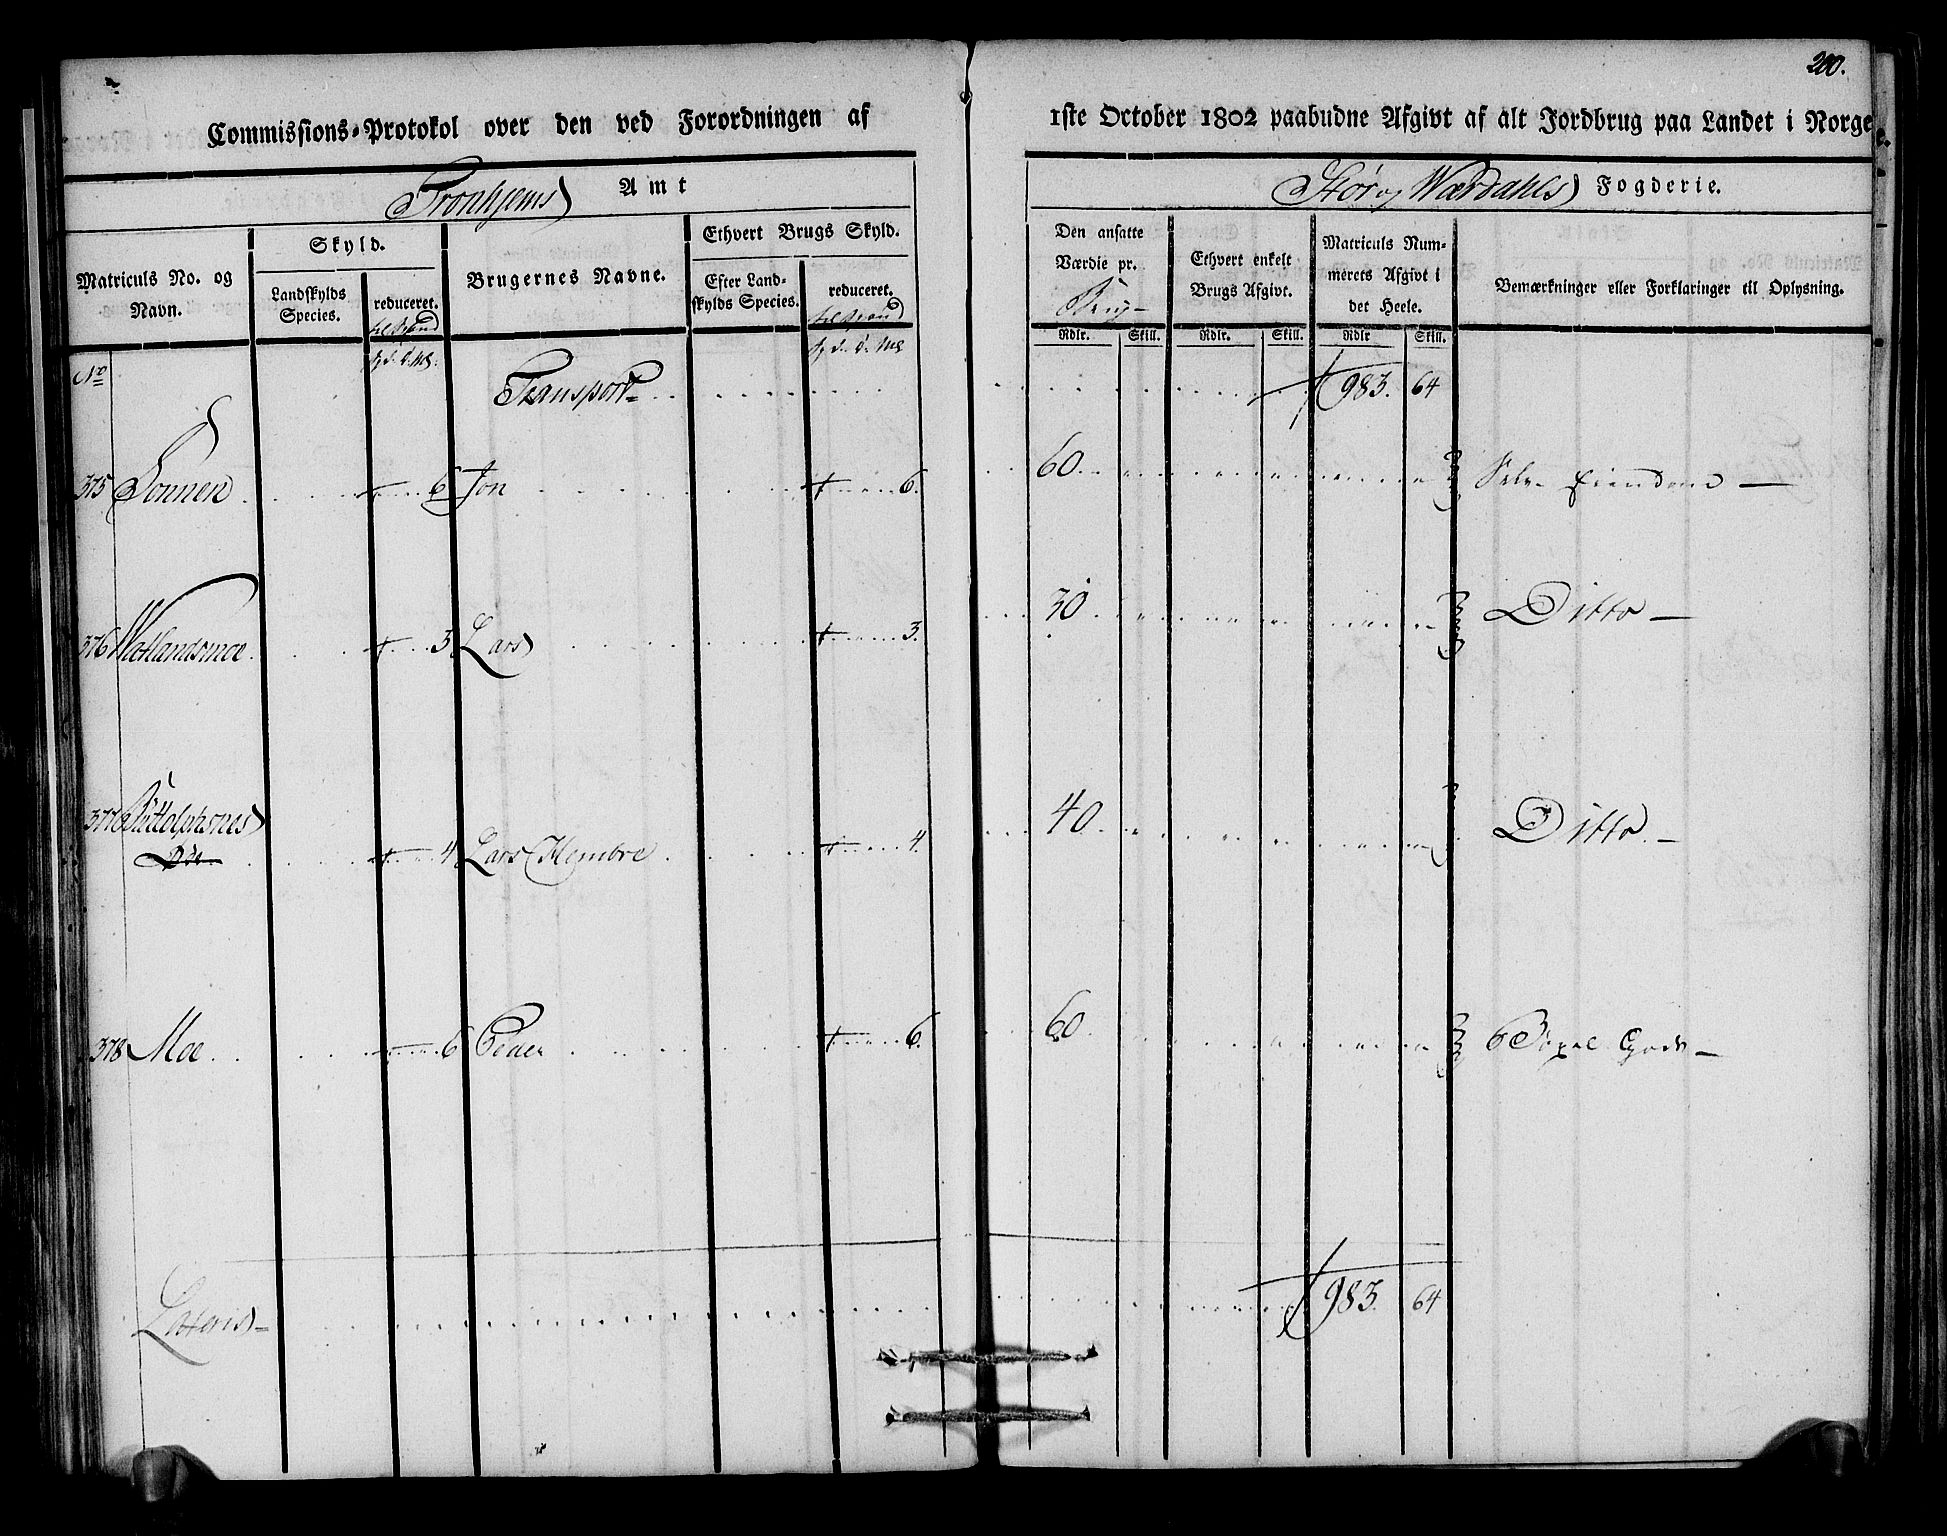 200.
Commissions-Protokol over den ved Forordningen af 1ste October 1802 paabudne Afgivt af alt Jordbrug paa Landet i Norge.
Tronhjems Amt
Stør og Wærdahls Fogderie.
Matriculs No. og Navn.
Skyld.
Landskylds Species.
reduceret.
Brugernes Navne.
Ethvert Brugs Skyld.
Efter Landskylds Species.
reduceret.
Den ansatte Værdie pr. Brug
Ethvert enkelt Brugs Afgivt.
Matriculs Nummerets Afgivt i det Heele.
Bemærkninger eller Forklaringer til Oplysning.
Rdlr. Skill. Rdlr. Skill. Rdlr Skill.
No
Transport 983. 64
375 Sonnen 6 Jon 6. 60 Selv Eiendom
376 Watlandsmoe 3 Lars 3. 30 Ditto
377 Bottolphsnes
4 Lars Hembre 4 40 Ditto
378 Moe 6 Peder 6. 60 Gods
Lateris 983. 64